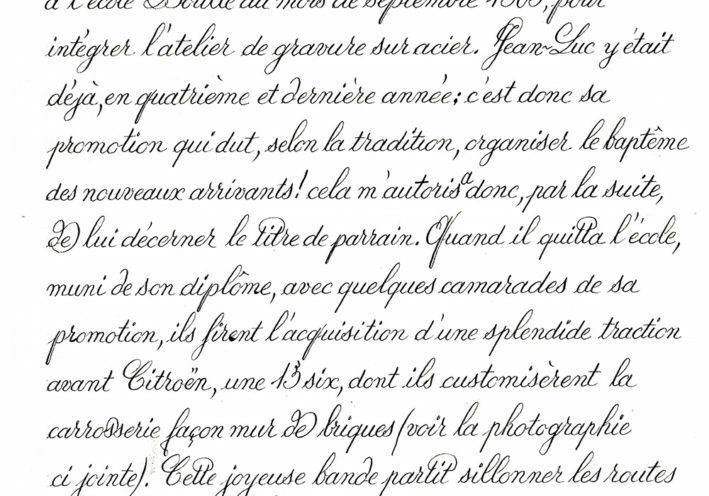 à l'école Boulle au mois de septembre 1969, pour
intégrer l'atelier de gravure sur acier. Jean-Luc y était
déjà, en quatrième et dernière année; c'est donc sa
promotion qui dut, selon la tradition, organiser le baptême
des nouveaux arrivants! cela m'autorisa donc, par la suite,
de lui décerner le titre de parrain. Quand il quitta l'école,
muni de son diplôme, avec quelques camarades de sa
promotion, ils firent l'acquisition d'une splendide traction
avant Citroën, une 15 six, dont ils customisèrent la
carrosserie façon mur de briques (voir la photographie
ci jointe). Cette joyeuse bande partit sillonner les routes